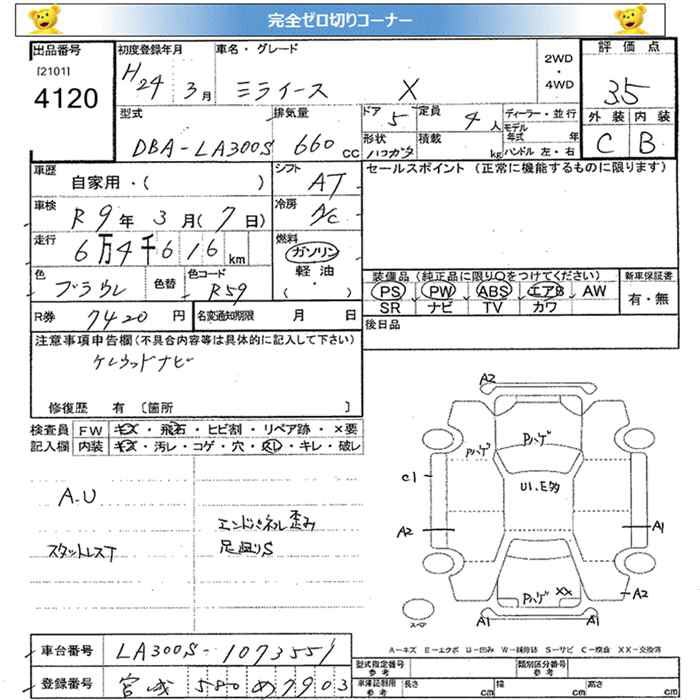 完全ゼロ切りコーナー
出品番号
[2101]
4120
初度登録年月
H24年 3月
車名・グレード
ミライース X
2WD
・
4WD
評価点
3.5
外装 内装
C B
型式
DBA-LA300S
排気量
660 cc
ドア
5
定員
4人
形状
ハツバチ
積載
kg
ディーラー・並行
モデル年式 年
ハンドル 左・右
車歴
自家用・( )
シフト
AT
セールスポイント (正常に機能するものに限ります)
車検
R9年 3月(7日)
冷房
A/C
走行
6万4千616km
燃料
ガソリン
軽油
・
( )
色
ブラウン
色替
色コード
R59
装備品 (純正品に限り○をつけてください)
PS PW ABS エアB AW
SR ナビ TV カワ
新車保証書
有・無
R券 7420円
名変通知期限 月 日
後日品
注意事項申告欄(不具合内容等は具体的に記入して下さい)
ケンウッドナビ
修復歴 有 〔箇所 〕
検査員記入欄
FW キズ・飛石・ヒビ割・リペア跡・×要
内装 キズ・汚レ・コゲ・穴・スレ・キレ・破レ
A.U
スタットレスT
エンドパネル歪み
足廻りS
A2
Pハゲ
Pハゲ
C1
U1.E多
A2
A1
Pハゲ XX
A2
A1 A1
スペア
A-キズ E-エクボ U-凹み W-補修跡 S-サビ C-腐食 XX-交換済
車台番号 LA300S-1073551
登録番号 宮城 580 め 7903
型式指定番号
参考
類別区分番号
参考
車庫証明用
参考
長さ cm 幅 cm 高さ cm